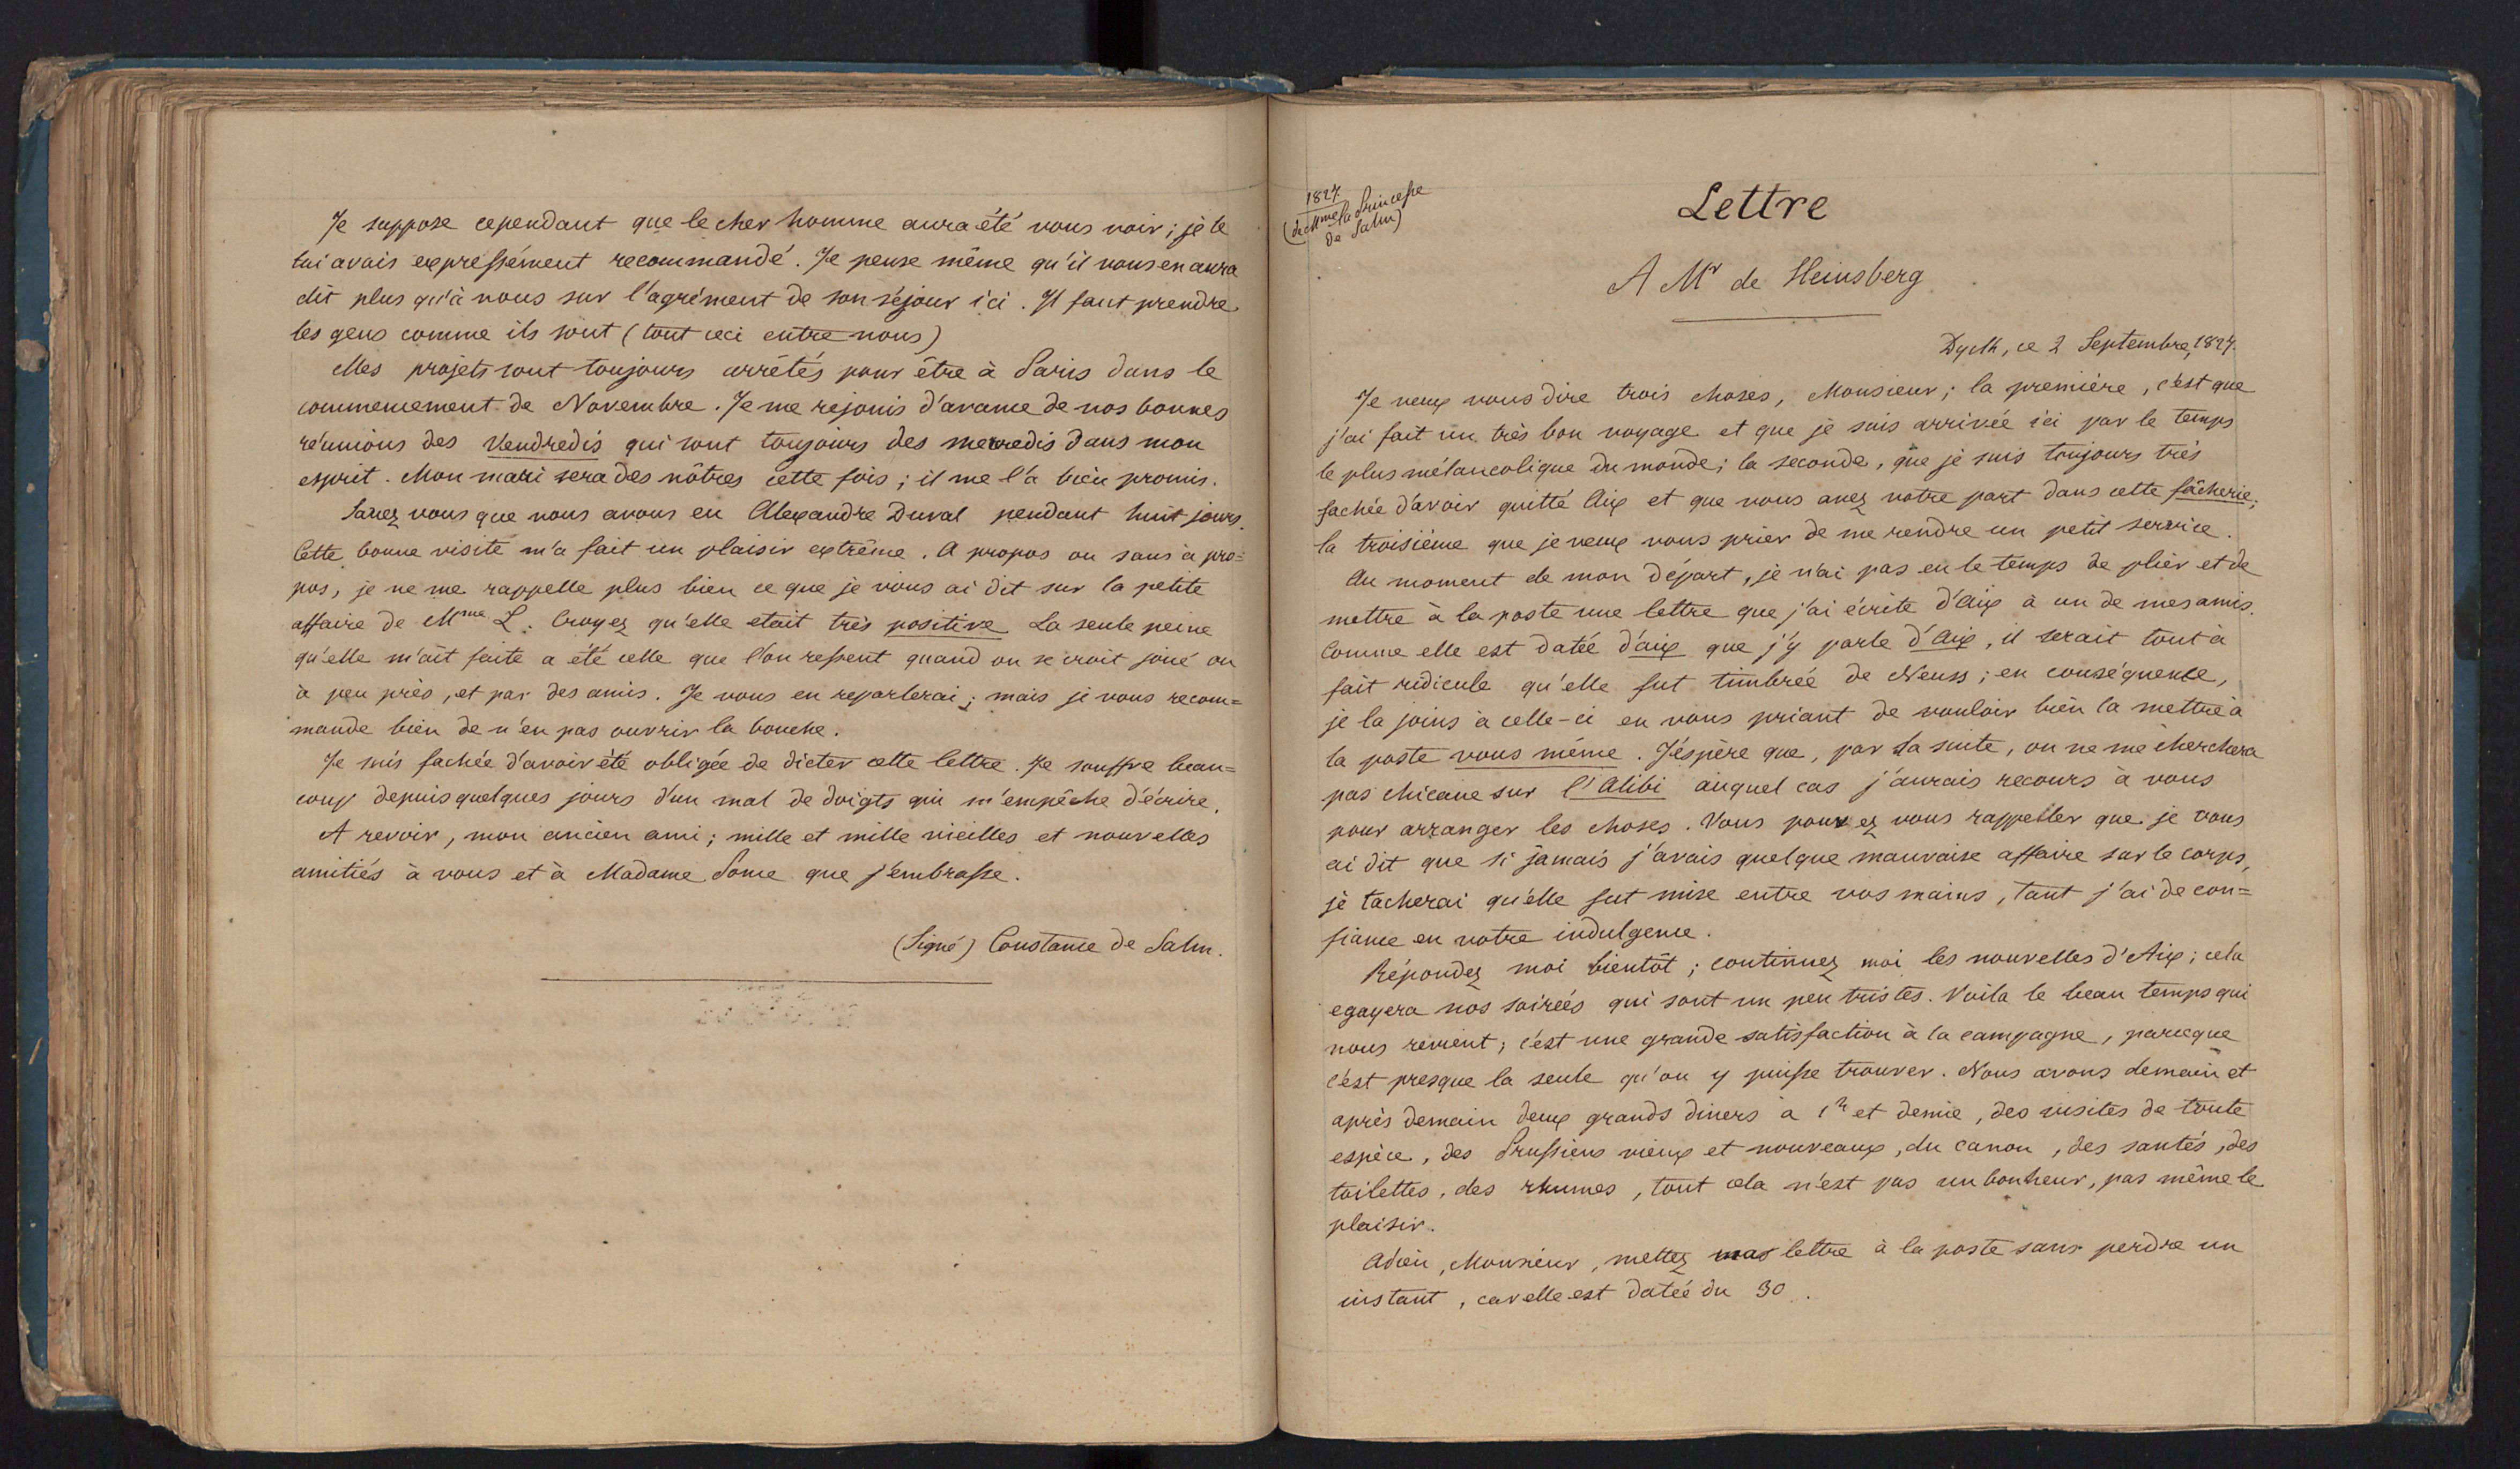 Je suppose cependant que le cher homme aura été vous voir ; je le
lui avais expressément recommandé. Je pense même qu'il vous en aura
dit plus qu'à nous sur l'agrément de son séjour ici. Il faut prendre
les gens comme ils sont (tout ceci entre nous)
Mes projets sont toujours arrêtés pour être à Paris dans le
commencement de Novembre. Je me rejouis d'avance de nos bonnes
réunions des Vendredis qui sont toujours des mercredis dans mon
esprit. Mon mari sera des nôtres cette fois ; il me l'a bien promis.
Savez vous que nous avons eu Alexandre Duval pendant huit jours.
Cette bonne visite m'a fait un plaisir extrême. A propos ou sans à pro=
pos, je ne me rappelle plus bien ce que je vous ai dit sur la petite
affaire de Mme L. Croyez qu'elle etait très positive La seule peine
qu'elle m'ait faite a été celle que l'on ressent quand on se croit joué ou
à peu près, et par des amis. Je vous en reparlerai ; mais je vous recom=
mande bien de n'en pas ouvrir la bouche.
Je suis fachée d'avoir été obligée de dicter cette lettre. Je souffre beau=
coup depuis quelques jours d'un mal de doigts qui m'empêche d'écrire.
A revoir, mon ancien ami ; mille et mille vieilles et nouvelles
amitiés à vous et à Madame Lome que j'embrasse.
(Signé) Constance de Salm.
1827.
(de Mme la Princesse
de Salm)
Lettre
A Mr de Heinsberg
Dyck, ce 2 Septembre, 1827.
Je veux vous dire trois choses, Monsieur ; la première, c'est que
j'ai fait un très bon voyage et que je suis arrivée ici par le temps
le plus mélancolique du monde ; la seconde, que je suis toujours très
fachée d'avoir quitté Aix et que vous avez votre part dans cette fâcherie ;
la troisième que je veux vous prier de me rendre un petit service.
Au moment de mon départ, je n'ai pas eu le temps de plier et de
mettre à la poste une lettre que j'ai écrite d'Aix à un de mes amis.
Comme elle est datée d'aix que j'y parle d'Aix, il serait tout à
fait ridicule qu'elle fut timbrée de Neuss ; en conséquence,
je la joins à celle-ci en vous priant de vouloir bien la mettre à
la poste vous même. J'espère que, par la suite, on ne me cherchera
pas chicane sur l'Alibi auquel cas j'aurais recours à vous
pour arranger les choses. Vous pouvez vous rappeller que je vous
ai dit que si jamais j'avais quelque mauvaise affaire sur le corps,
je tacherai qu'elle fut mise entre vos mains, tant j'ai de con=
fiance en votre indulgence.
Répondez moi bientôt ; continuez moi les nouvelles d'Aix ; cela
egayera nos soirées qui sont un peu tristes. Voila le beau temps qui
nous revient ; c'est une grande satisfaction à la campagne, parceque
c'est presque la seule qu'on y puisse trouver. Nous avons demain et
après demain deux grands diners a 1h et demie, des visites de toute
espèce, des Prussiens vieux et nouveaux, du canon, des santés, des
toilettes, des rhumes, tout cela n'est pas un bonheur, pas même le
plaisir.
Adieu, Monsieur, mettez ma lettre à la poste sans perdre un
instant, car elle est datée du 30.